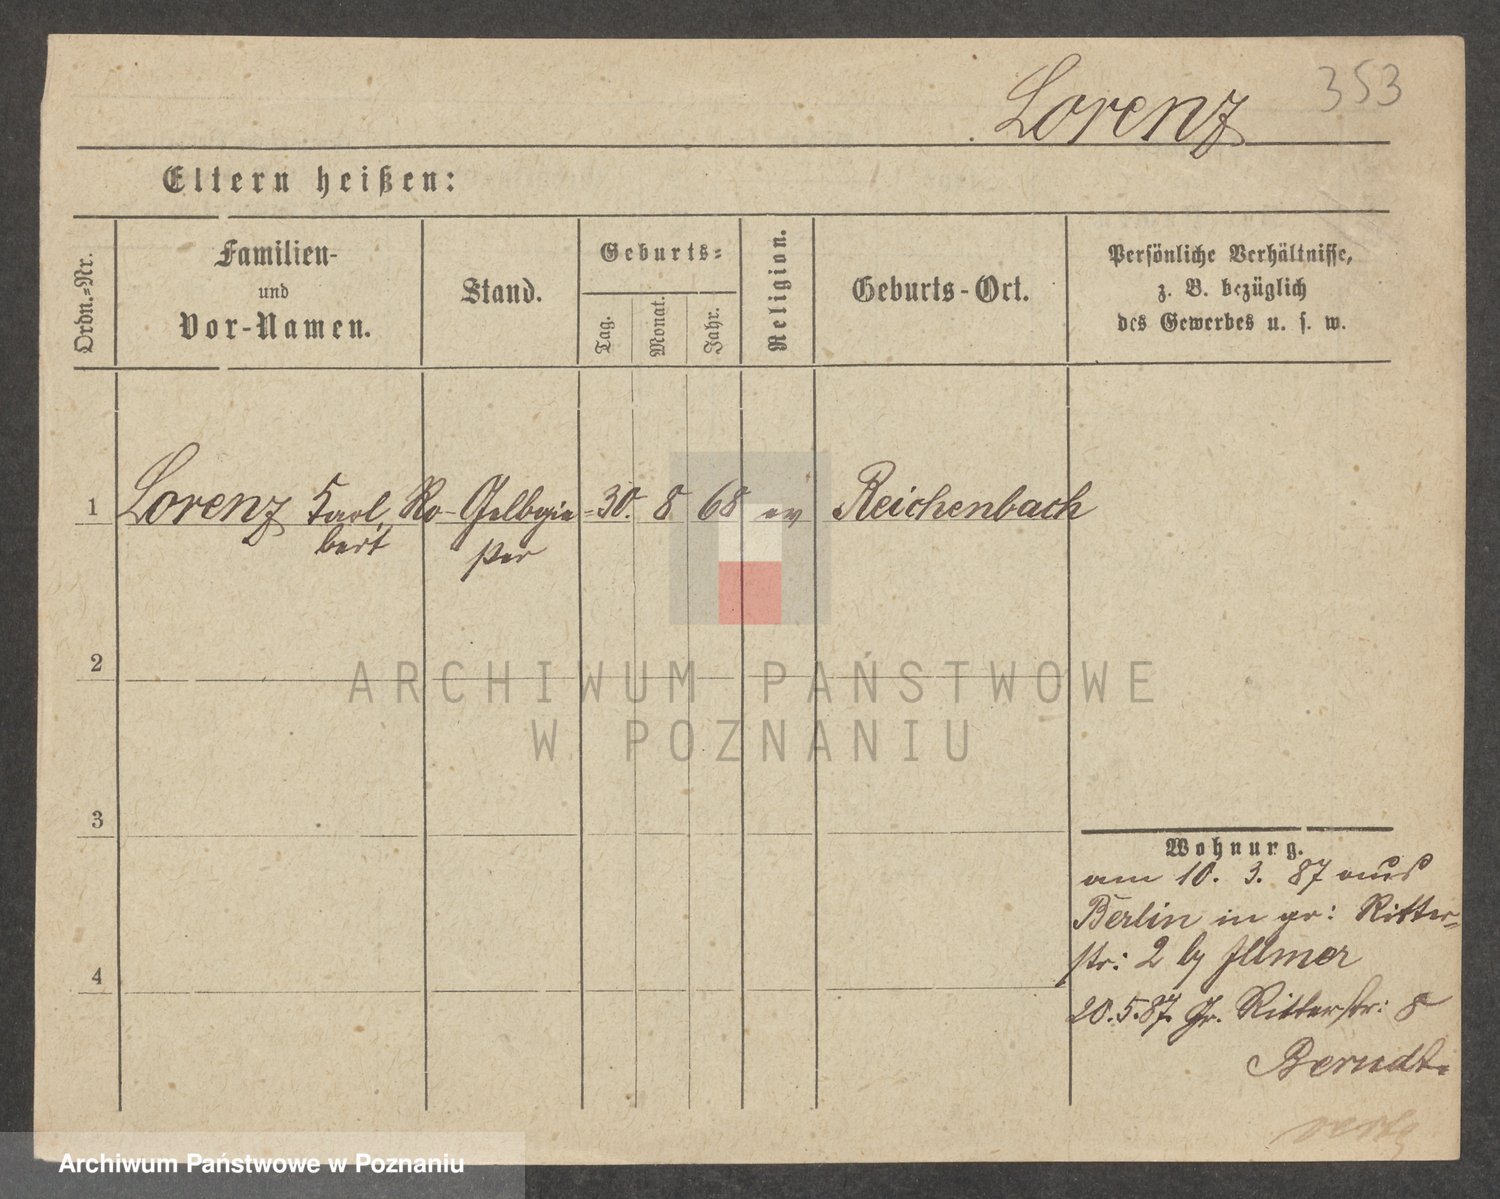 353
Lorenz
Eltern heißen:
Ordn.-Nr.
Familien-
und
Vor-Namen.
Stand.
Geburts-
Tag.
Monat.
Jahr.
Religion.
Geburts-Ort.
Persönliche Verhältnisse,
z. B. bezüglich
des Gewerbes u. s. w.
1 Lorenz Karl, Ro- Gelbgie- 30. 8 68 ev Reichenbach
bert ßer
2
ARCHIWUM PAŃSTWOWE
W POZNANIU
3
Wohnung.
am 10. 3. 87 aus
Berlin in gr: Ritter-
str: 2 by Illmer
4
20.5.87. Gr. Ritterstr: 8
Berndt.
Archiwum Państwowe w Poznaniu